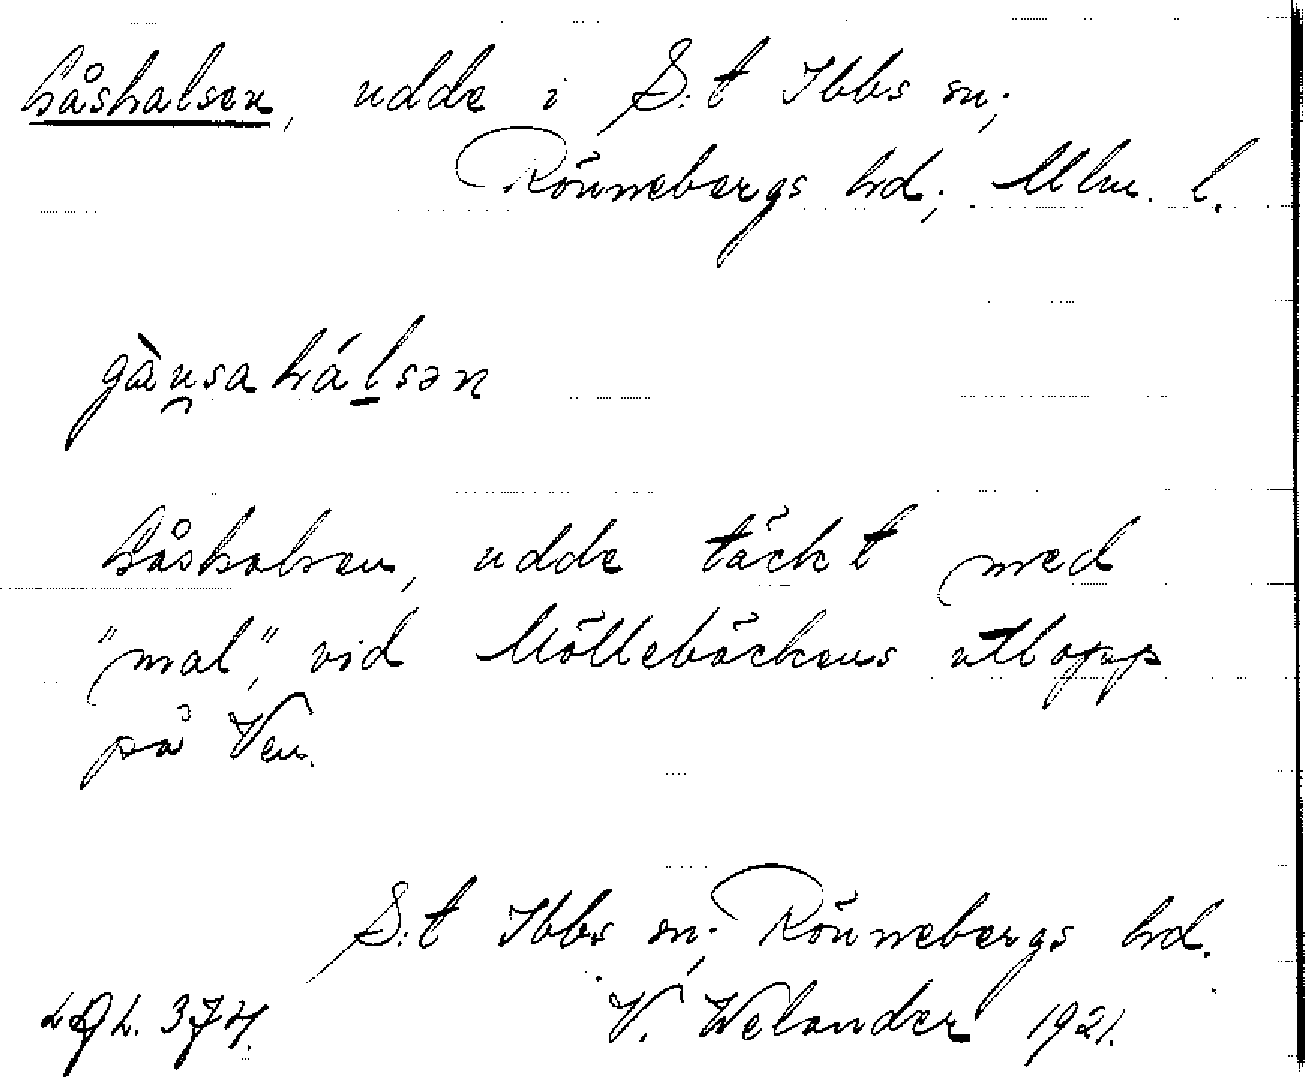 Gåshalsen, udde i S:t Ibbs sn;
Rönnebergs hd; Mlm. l.
gàu̯sahál̠sən
Gåshalsen, udde täckt med
"mal", vid Möllebäckens utlopp
på Ven.
S:t Ibbs sn; Rönnebergs hd.
V. Welander 1921.